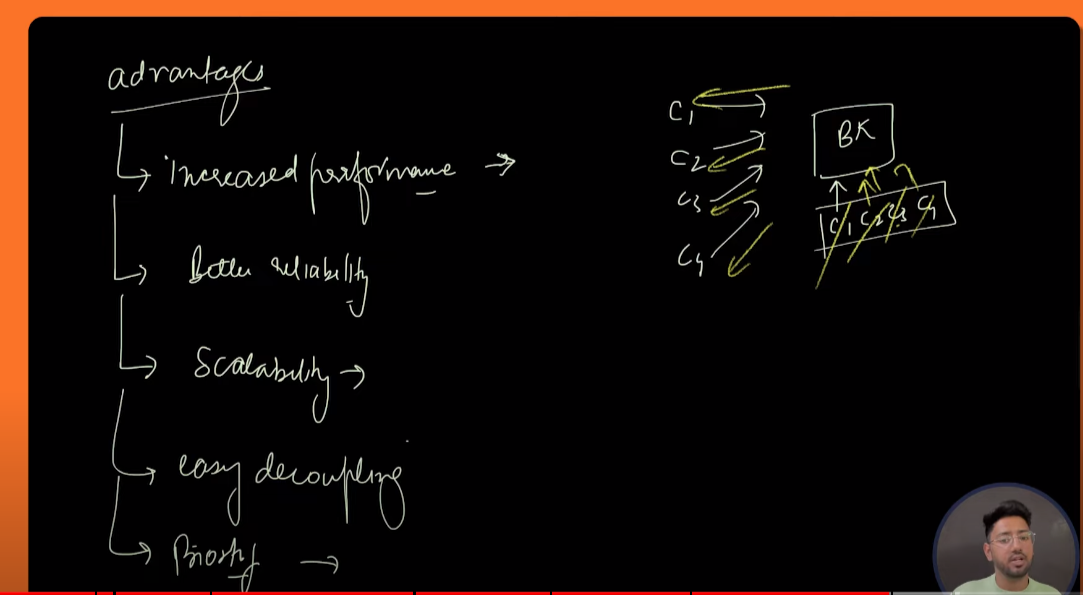 advantages
increased performance
Better reliability
Scalability
easy decoupling
Priority
C1
C2
C3
C4
BK
C1 C2 C3 C4